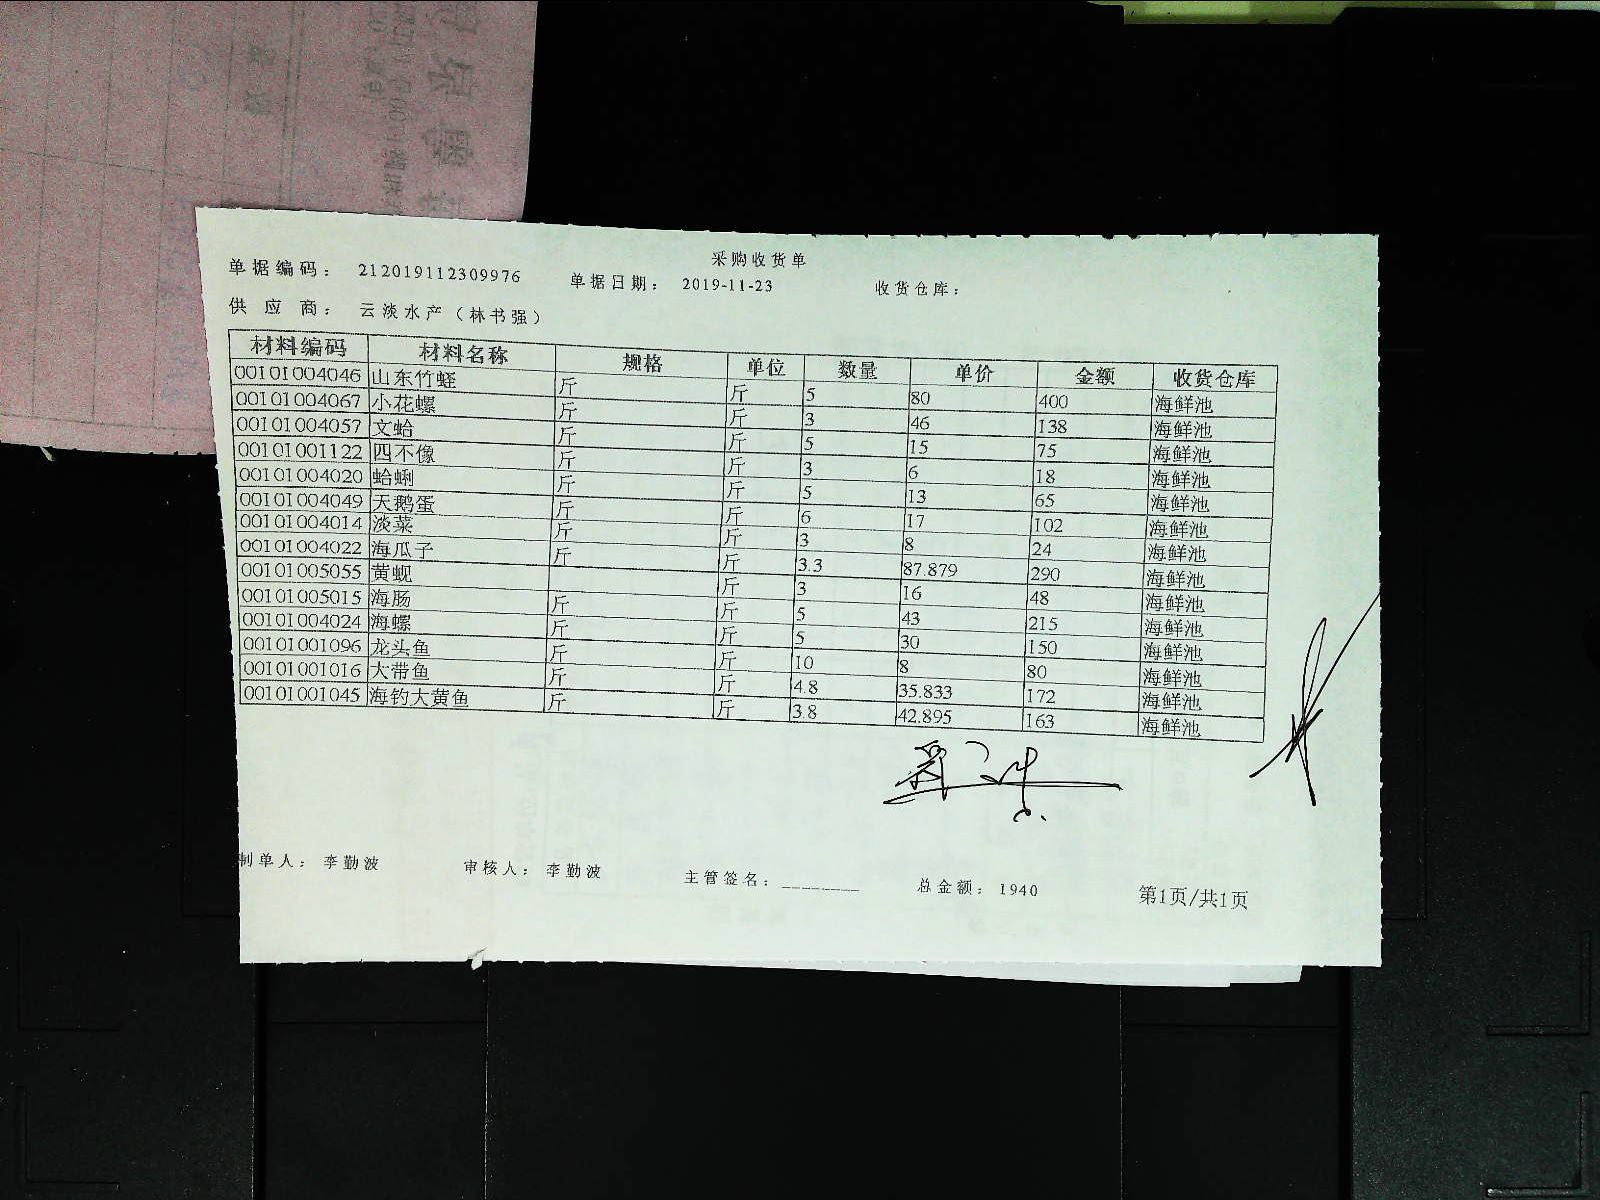 采购收货单
单据编码： 212019112309976 单据日期： 2019-11-23 收货仓库：
供 应 商： 云淡水产（林书强）
材料编码 材料名称 规格 单位 数量 单价 金额 收货仓库
00101004046 山东竹蛏 斤 斤 5 80 400 海鲜池
00101004067 小花螺 斤 斤 3 46 138 海鲜池
00101004057 文蛤 斤 斤 5 15 75 海鲜池
00101001122 四不像 斤 斤 3 6 18 海鲜池
00101004020 蛤蜊 斤 斤 5 13 65 海鲜池
00101004049 天鹅蛋 斤 斤 6 17 102 海鲜池
00101004014 淡菜 斤 斤 3 8 24 海鲜池
00101004022 海瓜子 斤 斤 3.3 87.879 290 海鲜池
00101005055 黄蚬 斤 3 16 48 海鲜池
00101005015 海肠 斤 斤 5 43 215 海鲜池
00101004024 海螺 斤 斤 5 30 150 海鲜池
00101001096 龙头鱼 斤 斤 10 8 80 海鲜池
00101001016 大带鱼 斤 斤 4.8 35.833 172 海鲜池
00101001045 海钓大黄鱼 斤 斤 3.8 42.895 163 海鲜池
制单人： 李勤波 审核人： 李勤波 主管签名：________ 总金额： 1940 第1页/共1页